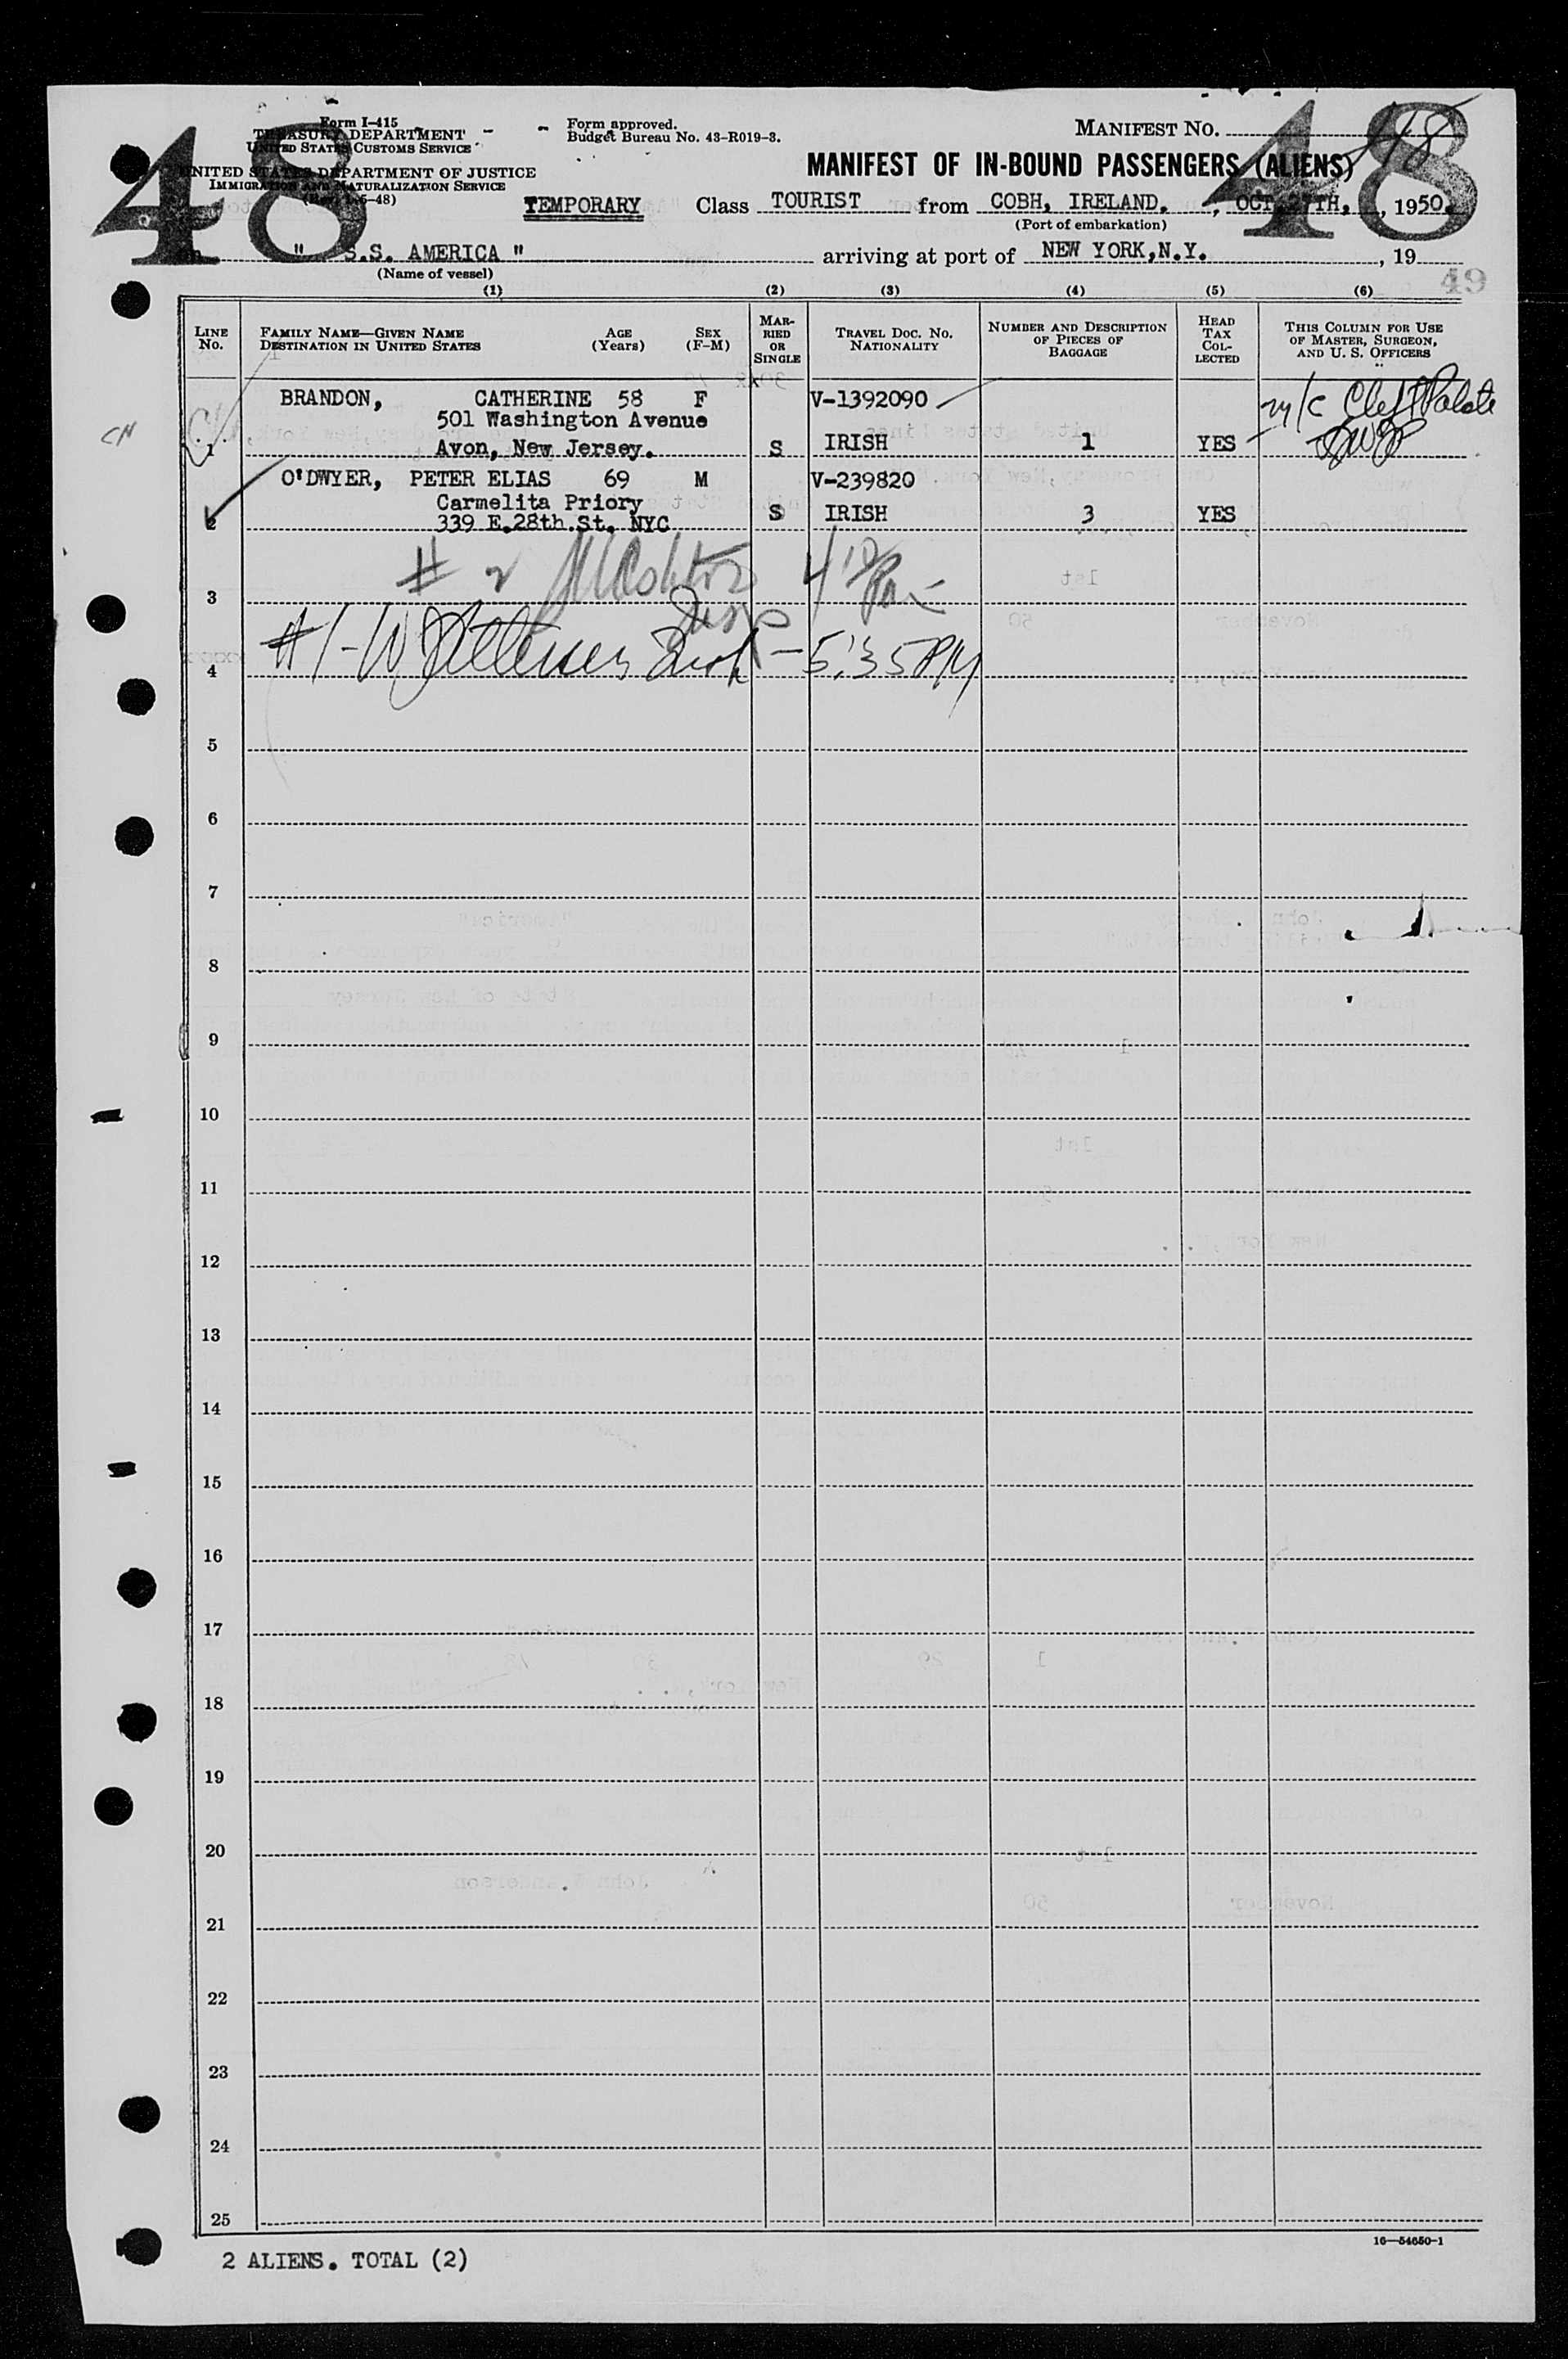 48
48
Form I-415
TREASURY DEPARTMENT
UNITED STATES CUSTOMS SERVICE
UNITED STATES DEPARTMENT OF JUSTICE
IMMIGRATION AND NATURALIZATION SERVICE
Form approved.
Budget Bureau No. 43-R019-3.
MANIFEST NO. 48
MANIFEST OF IN-BOUND PASSENGERS (ALIENS)
TEMPORARY Class TOURIST from COBH, IRELAND. , OCT. 27TH, , 1950.
(Port of embarkation)
" S.S. AMERICA " arriving at port of NEW YORK,N.Y. , 19
(Name of vessel)
49
(1) (2) (3) (4) (5) (6)
LINE No.
FAMILY NAME—GIVEN NAME
DESTINATION IN UNITED STATES
AGE (Years)
SEX (F-M)
MAR-RIED OR SINGLE
TRAVEL DOC. NO. NATIONALITY
NUMBER AND DESCRIPTION OF PIECES OF BAGGAGE
HEAD TAX COL-LECTED
THIS COLUMN FOR USE OF MASTER, SURGEON, AND U. S. OFFICERS
BRANDON, CATHERINE 58 F V-1392090 Cleft Palate
501 Washington Avenue
CN 1 Avon, New Jersey. S IRISH 1 YES
O'DWYER, PETER ELIAS 69 M V-239820
Carmelita Priory
2 339 E.28th.St. NYC S IRISH 3 YES
# 2
3
#1- 5:35 PM
4
5
6
7
8
9
10
11
12
13
14
15
16
17
18
19
20
21
22
23
24
25
16—54650-1
2 ALIENS. TOTAL (2)